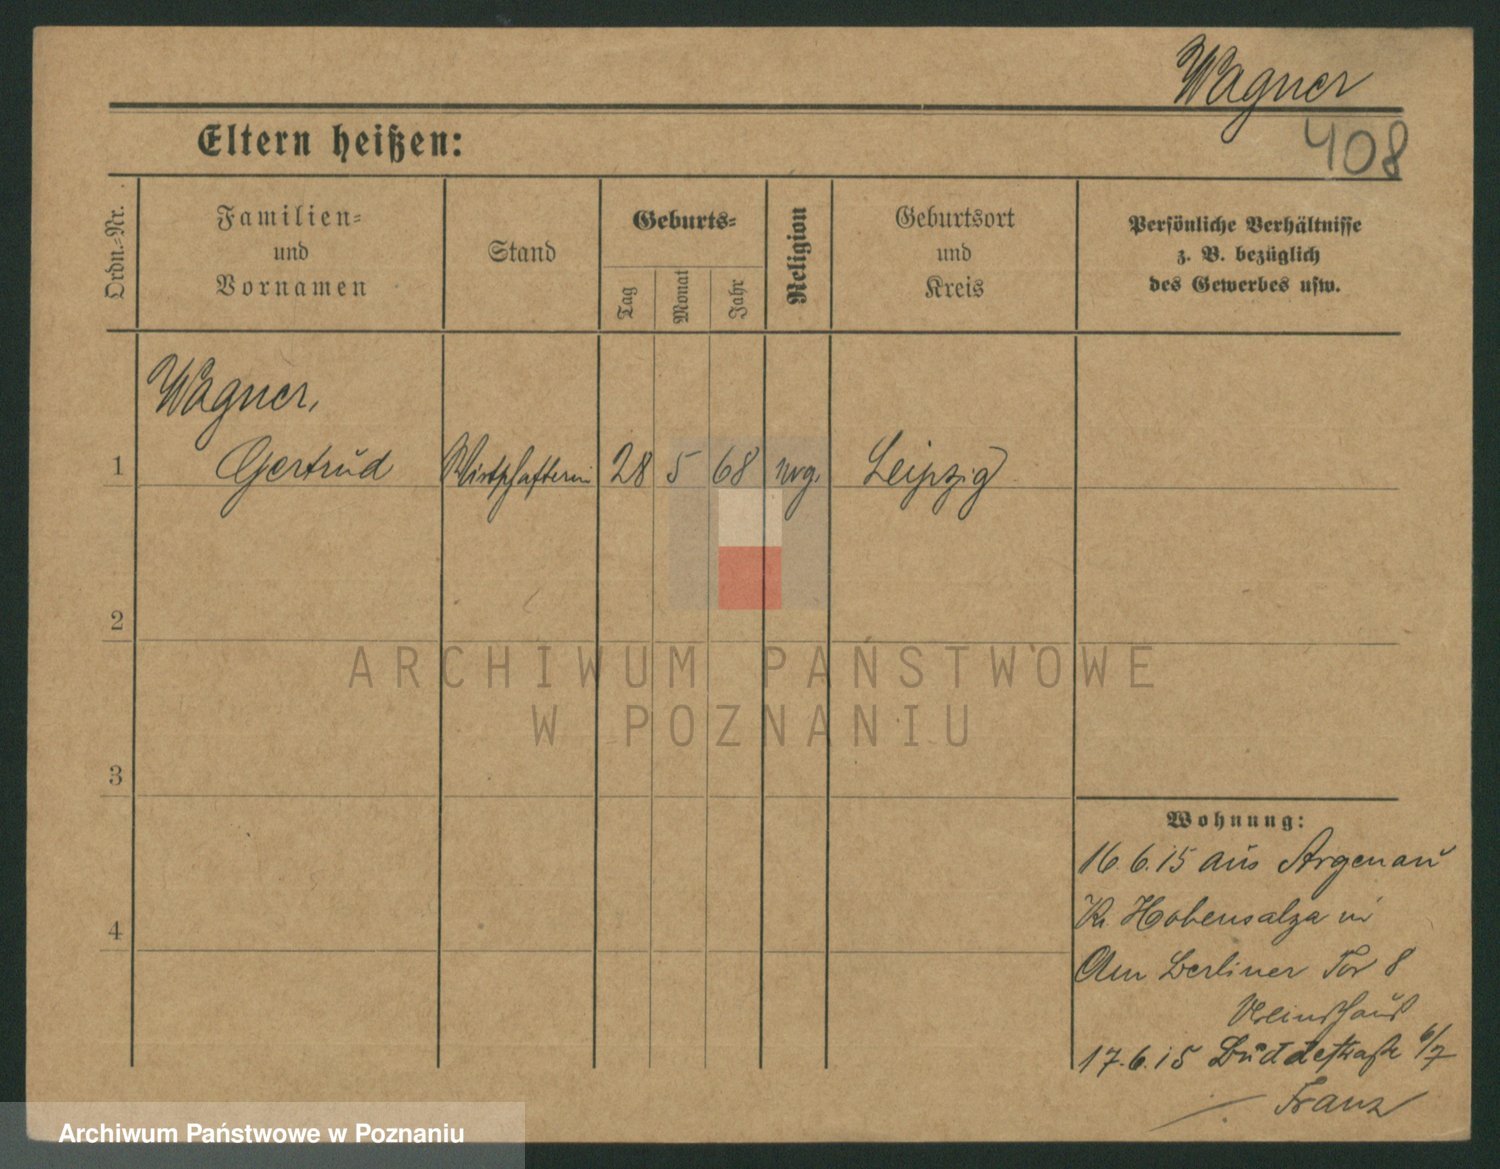 Wagner
408
Eltern heißen:
Ordn.-Nr.
Familien-
und
Vornamen
Stand
Geburts-
Tag
Monat
Jahr
Religion
Geburtsort
und
Kreis
Persönliche Verhältnisse
z. B. bezüglich
des Gewerbes usw.
Wagner,
1 Gertrud Wirtschafterin 28 5 68 Leipzig
2
3
4
ARCHIWUM PAŃSTWOWE
W POZNANIU
Wohnung:
16.6.15 aus Argenau
Kr. Hohensalza in
Am Berliner Tor 8
Vereinshaus
17.6.15 Buddestraße 6/7
Franz
Archiwum Państwowe w Poznaniu